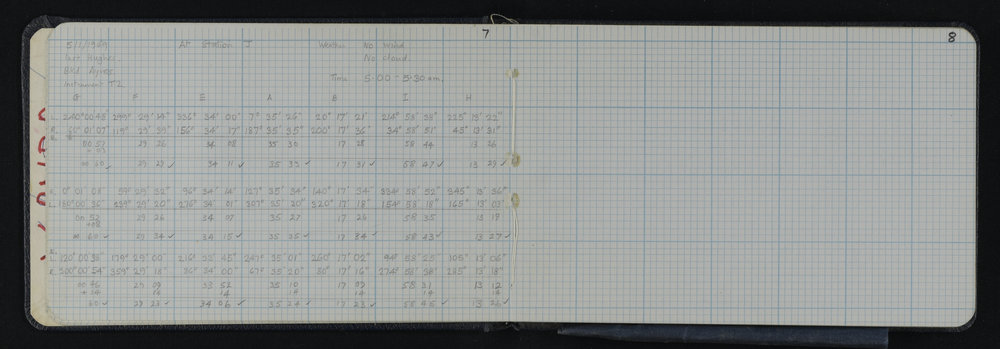 7
8
5/1/1959 At Station J Weather No Wind
Inst Hughes No cloud
Bkd Ayres Time 5.00 - 5.30 am.
Instrument T2
G F E A B I H
L. 240° 00 48" 299° 29' 14" 336° 34' 00" 7° 35' 26" 20° 17' 21" 214° 58' 38" 225° 13' 22"
R. 60° 01' 07" 119° 29' 39" 156° 34' 17" 187° 35' 35" 200° 17' 36" 34° 58' 51" 45° 13' 31"
00 57 29 26 34 08 35 30 17 28 58 44 13 26
+ 03
00 60 ✓ 29 29 ✓ 34 11 ✓ 35 33 ✓ 17 31 ✓ 58 47 ✓ 13 29 ✓
R. 0° 01' 08" 59° 29' 32" 96° 34' 14" 127° 35' 34" 140° 17' 34" 334° 58' 52" 345° 13' 36"
L. 180° 00' 36" 239° 29' 20" 276° 34' 01" 307° 35' 20" 320° 17' 18" 154° 58' 18" 165° 13' 03"
00 52 29 26 34 07 35 27 17 26 58 35 13 19
+08
60 ✓ 29 34 ✓ 34 15 ✓ 35 35 ✓ 17 34 ✓ 58 43 ✓ 13 27 ✓
L. 120° 00' 38" 179° 29' 00" 216° 33' 45" 247° 35' 01" 260° 17' 02" 94° 58' 25" 105° 13' 06"
R. 300° 00' 54" 359° 29' 18" 36° 34' 00" 67° 35' 20" 80° 17' 16" 274° 58' 38" 285° 13' 18"
00 46 29 09 33 52 35 10 17 09 58 31 13 12
+ 14 14 14 14 14 14 14
60 ✓ 29 23 ✓ 34 06 ✓ 35 24 ✓ 17 23 ✓ 58 45 ✓ 13 26 ✓